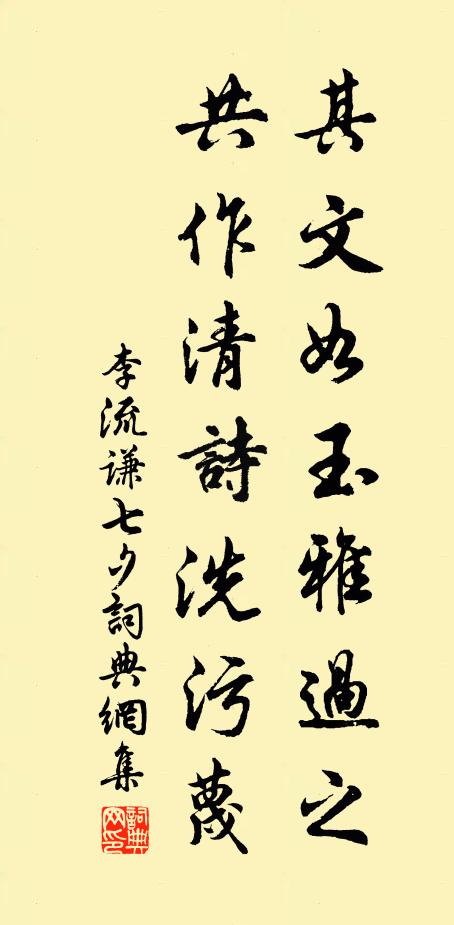 其文如玉雅過之
共作清詩洗污蔑
李流謙七夕詞典網集
詞典網印